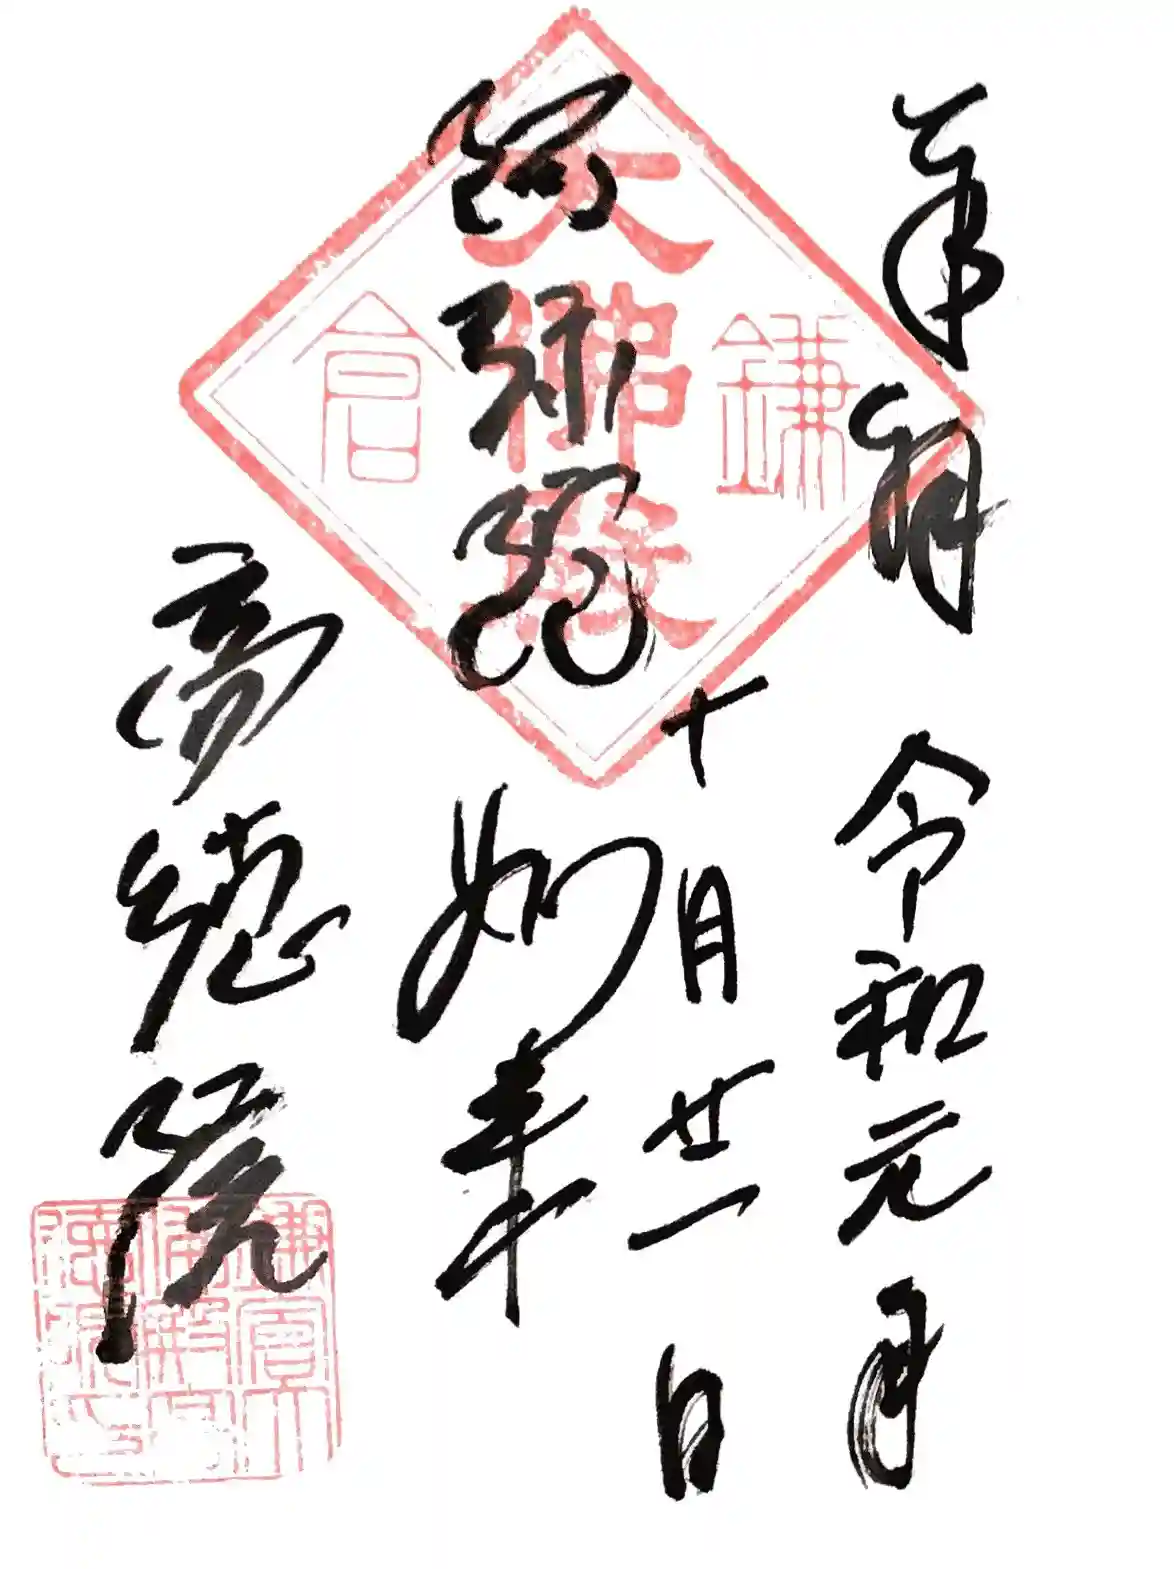 奉拝 令和元年
十月廿一日
阿弥陀如来
高徳院
鎌倉
大佛殿
鎌倉大
佛殿高
徳院印